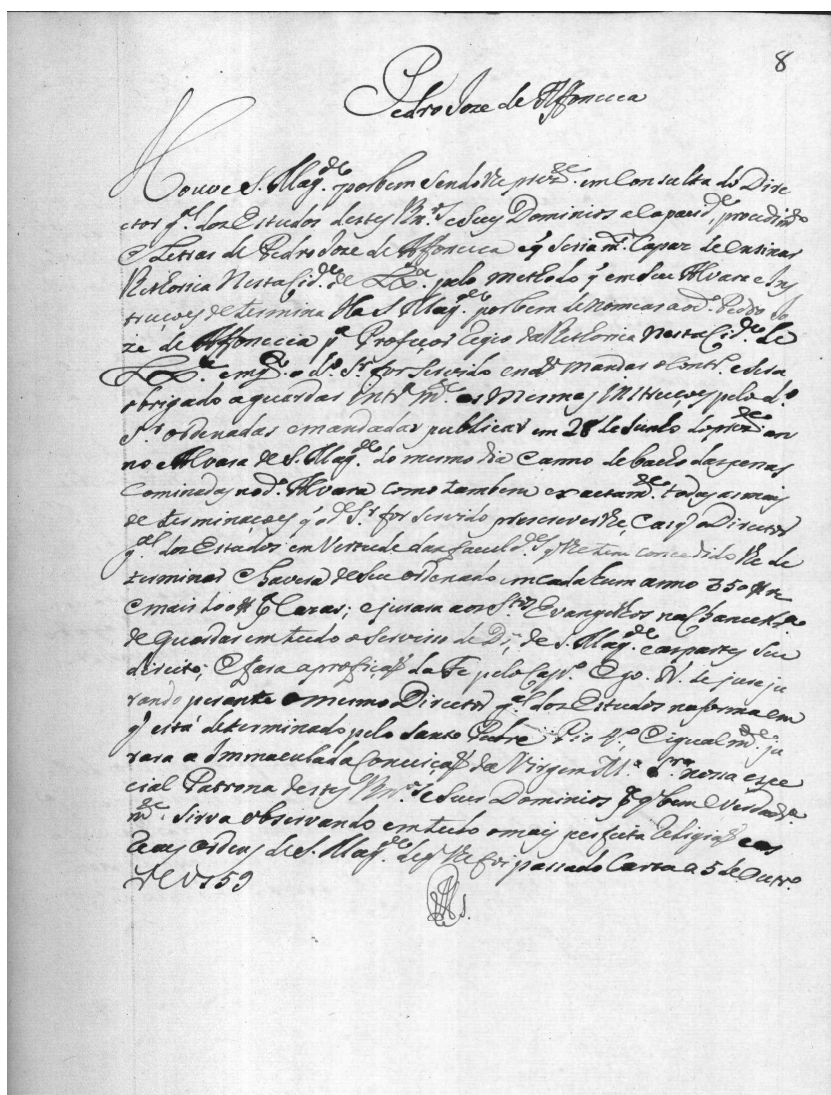 8
Pedro Joze de Affoncica
Houve S. Mag.de por bem Sendolhe prez.te em Consulta do Dire
ctor g.al dos Estudos destes Rn.os e Seus Dominios a Capacid.e procedim.to
e Letras de Pedro Joze de Affoncica e q̃ Seria m.to Capaz de ensinar
Rethorica Nesta Cid.e de Lx.a pelo methodo q̃ em Seu Alvara e Ins
trucoes determina Ha S. Mag.de por bem de nomear ao d.o Pedro Jo
zé de Affoncica p.a Profeçor Regio da Rethorica nesta Cid.e de
Lx.a emq.to o d.o S.r for Servido e não mandar o Contr.o e Sera
obrigado a guardar Intr.am.te as Mesmas Instrucoes pelo d.o
S.r ordenadas e mandadas publicar em 28 de Junho do prez.te an
no e Alvara de S. Mag.de do mesmo dia e anno debacho das penas
Cominadas no d.o Alvara como tambem exactam.te todas as mais
determinacoes q̃ o d.o S.r for Servido prescreverlhe, e as q̃ o Director
g.al dos Estudos em Vertude das facul.des q̃ lhe tem concedido lhe de
terminar e havera de Seu ordenado em cada hum anno 350
e mais p.a Cazas; e jurara aos S.tos Evangelhos na Chancell.a
de guardar em tudo o Serviso de D.s, de S. Mag.de e as partes Seu
direito; e fara a profição da Fe pelo Cap.o Ego. N. de jureju
rando perante o mesmo Director g.al dos Estudos na forma em
q̃ está determinado pelo Santo Padre Pio 4.o, e igualm.te ju
rara a Immaculada Conceição da Virgem M.a nossa espe
cial Patrona destes Rn.os e Seus Dominios p.a q̃ bem e Verdadr.a
m.te Sirva observando em tudo o mais perfeita Religião e as
Leaes ordens de S. Mag.de de q̃ lhe foi passado Carta a 5 de Outr.o
de 1759